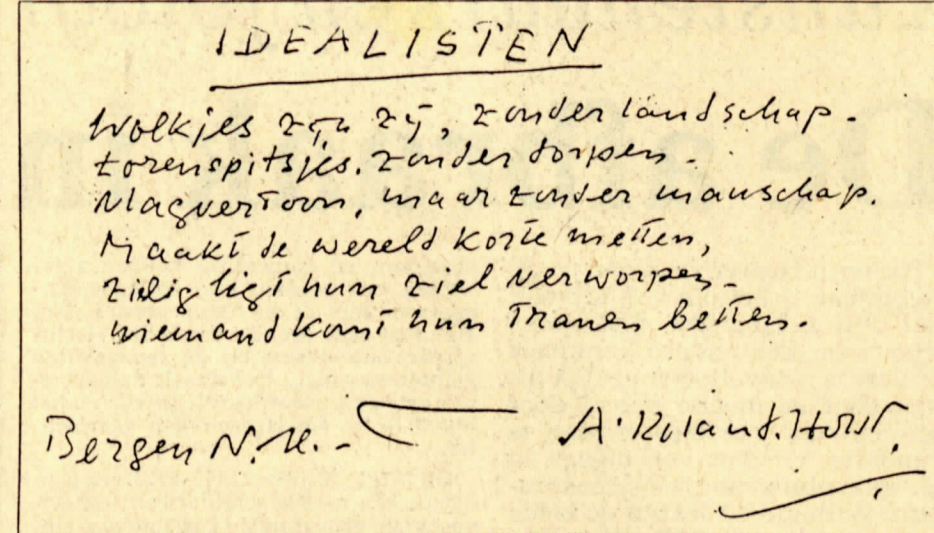 IDEALISTEN
Wolkjes zijn zij, zonder landschap.
torenspitsjes. zonder dorpen.
Vlagvertoon, maar zonder manschap.
Maakt de wereld korte metten,
zielig ligt hun ziel verworpen.
niemand komt hun tranen betten.
Bergen N.H. -
A. Roland. Holst.